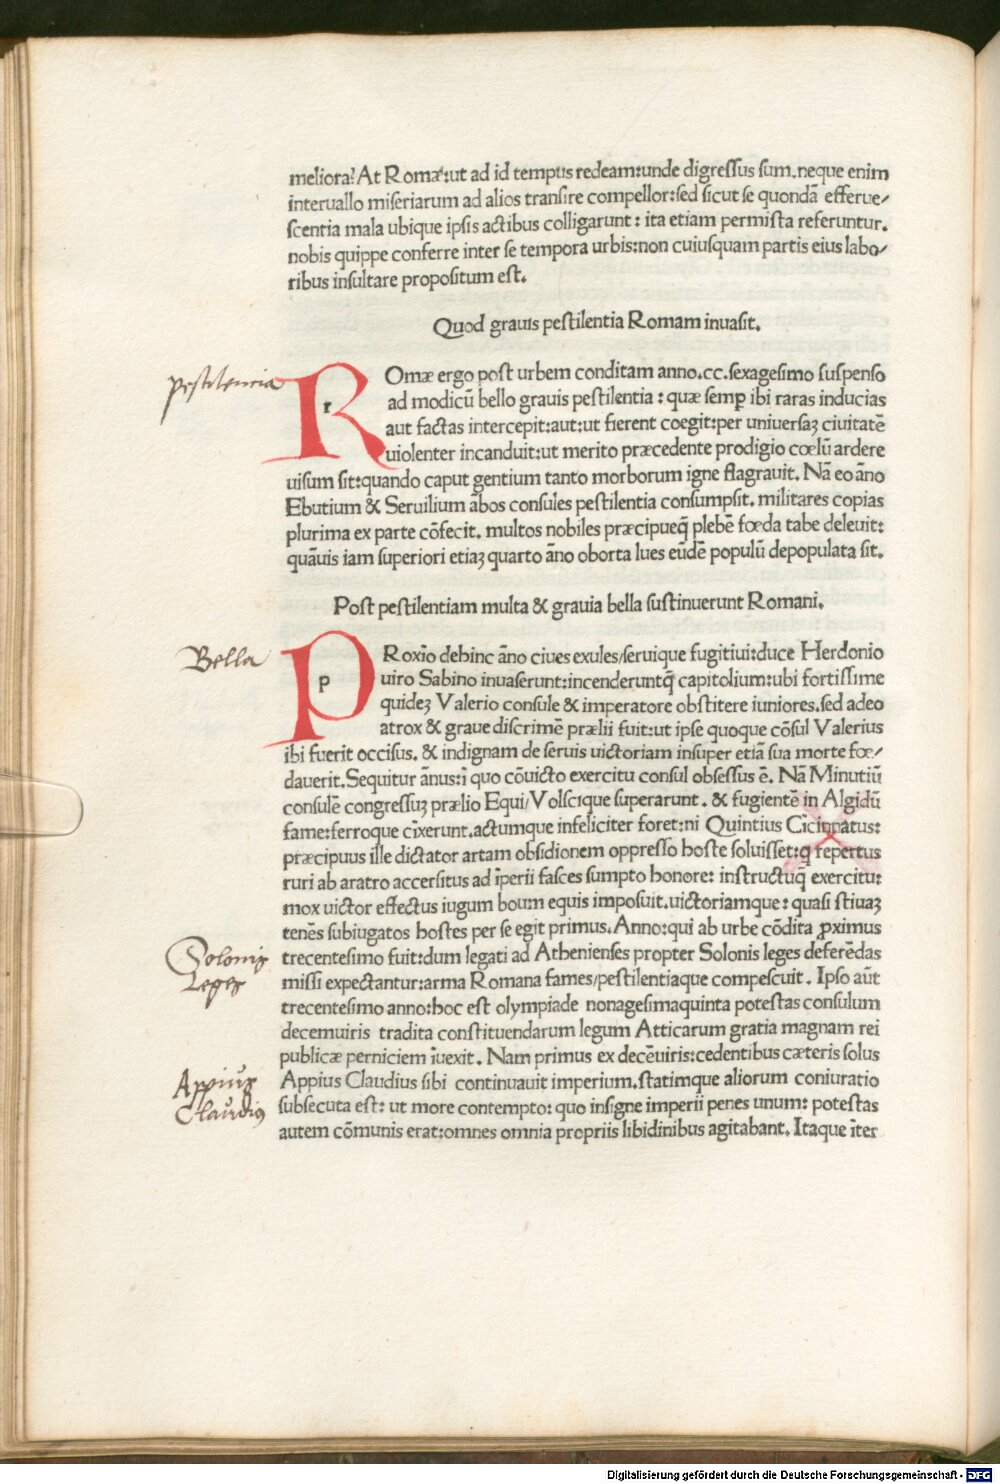 meliora? At Romæ: ut ad id tempus redeam: unde digressus sum. neque enim
interuallo miseriarum ad alios transire compellor: sed sicut se quondã efferue/
scentia mala ubique ipsis actibus colligarunt: ita etiam permista referuntur.
nobis quippe conferre inter se tempora urbis: non cuiusquam partis eius labo/
ribus insultare propositum est.
Quod grauis pestilentia Romam inuasit.
pestilencia
R r Omæ ergo post urbem conditam anno.cc.sexagesimo suspenso
ad modicũ bello grauis pestilentia: quæ semꝑ ibi raras inducias
aut factas intercepit: aut: ut fierent coegit: per uniuersaꝫ ciuitatẽ
uiolenter incanduit: ut merito præcedente prodigio cœlũ ardere
uisum sit: quando caput gentium tanto morborum igne flagrauit. Nã eo ãno
Ebutium & Seruilium ãbos consules pestilentia consumpsit. militares copias
plurima ex parte cõfecit. multos nobiles præcipueqꝫ plebẽ fœda tabe deleuit:
quãuis iam superiori etiaꝫ quarto ãno oborta lues eũdẽ populũ depopulata sit.
Post pestilentiam multa & grauia bella sustinuerunt Romani.
Bella
P p Roxĩo debinc ãno ciues exules/seruique fugitiui: duce Herdonio
uiro Sabino inuaserunt: incenderuntqꝫ capitolium: ubi fortissime
quideꝫ Valerio consule & imperatore obstitere iuniores. sed adeo
atrox & graue discrimẽ prælii fuit: ut ipse quoque cõsul Valerius
ibi fuerit occisus. & indignam de seruis uictoriam insuper etiã sua morte fœ/
dauerit. Sequitur ãnus: ĩ quo cõuicto exercitu consul obsessus ẽ. Nã Minutiũ
consulẽ congressuꝫ prælio Equi/Volscique superarunt. & fugientẽ in Algidũ
fame: ferroque cĩxerunt. actumque infeliciter foret: ni Quintius Cicinnatus:
præcipuus ille dictator artam obsidionem oppresso hoste soluisset: q̃ repertus
ruri ab aratro accersitus ad ĩperii fasces sumpto honore: instructuqꝫ exercitu:
mox uictor effectus iugum boum equis imposuit. uictoriamque: quasi stiuaꝫ
tenẽs subiugatos hostes per se egit primus. Anno: qui ab urbe cõdita ꝓximus
Solonis
leges
trecentesimo fuit: dum legati ad Athenienses propter Solonis leges deferẽdas
missi expectantur: arma Romana fames/pestilentiaque compescuit. Ipso aũt
trecentesimo anno: hoc est olympiade nonagesimaquinta potestas consulum
decemuiris tradita constituendarum legum Atticarum gratia magnam rei
publicæ perniciem ĩuexit. Nam primus ex decẽuiris: cedentibus cæteris solus
Appius
Claudius
Appius Claudius sibi continuauit imperium. statimque aliorum coniuratio
subsecuta est: ut more contempto: quo insigne imperii penes unum: potestas
autem cõmunis erat: omnes omnia propriis libidinibus agitabant. Itaque ĩter
Digitalisierung gefördert durch die Deutsche Forschungsgemeinschaft - DFG